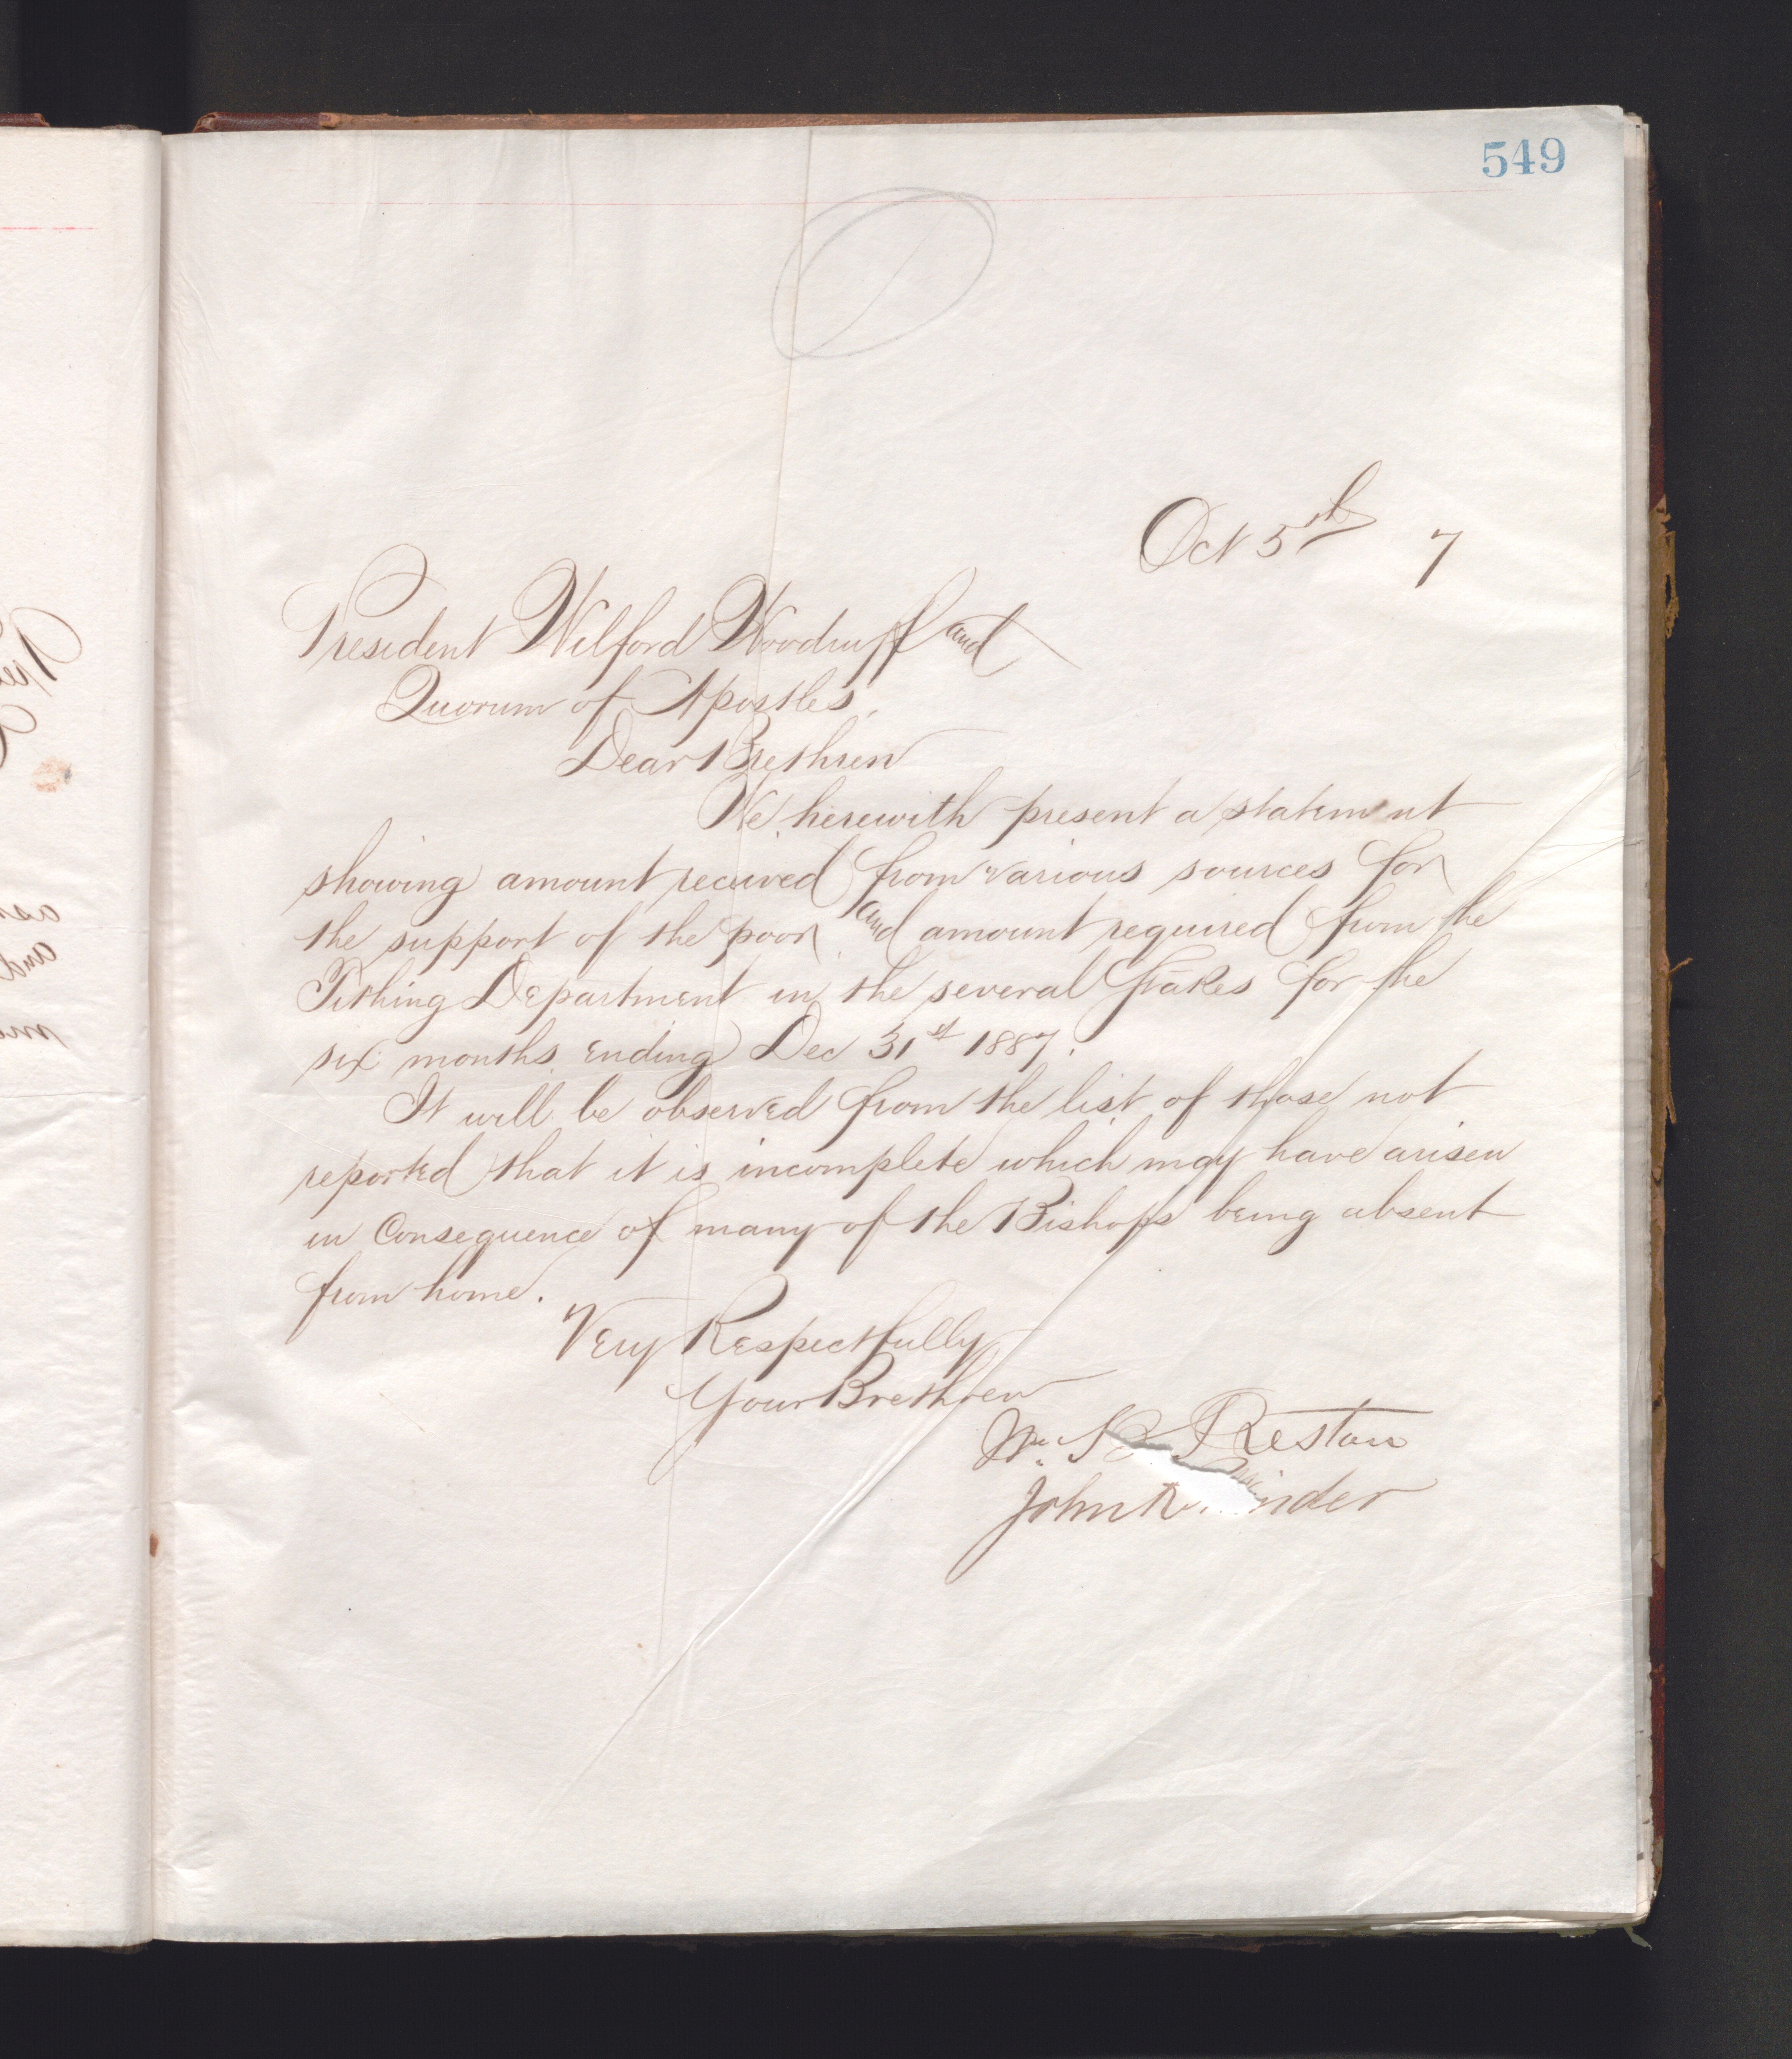 549
Oct 5th 7
President Wilford Woodruff and
Quorum of Apostles,
Dear Brethren
We herewith present a statement
showing amount received from various sources for
the support of the poor and amount required from the
Tithing Department in the several Stakes for the
six months ending Dec 31st 1887.
It will be observed from the list of those not
reported that it is incomplete which may have arisen
in Consequence of many of the Bishops being absent
from home.
Very Respectfully
Your Brethren
Wm. B. Preston
John R. inder